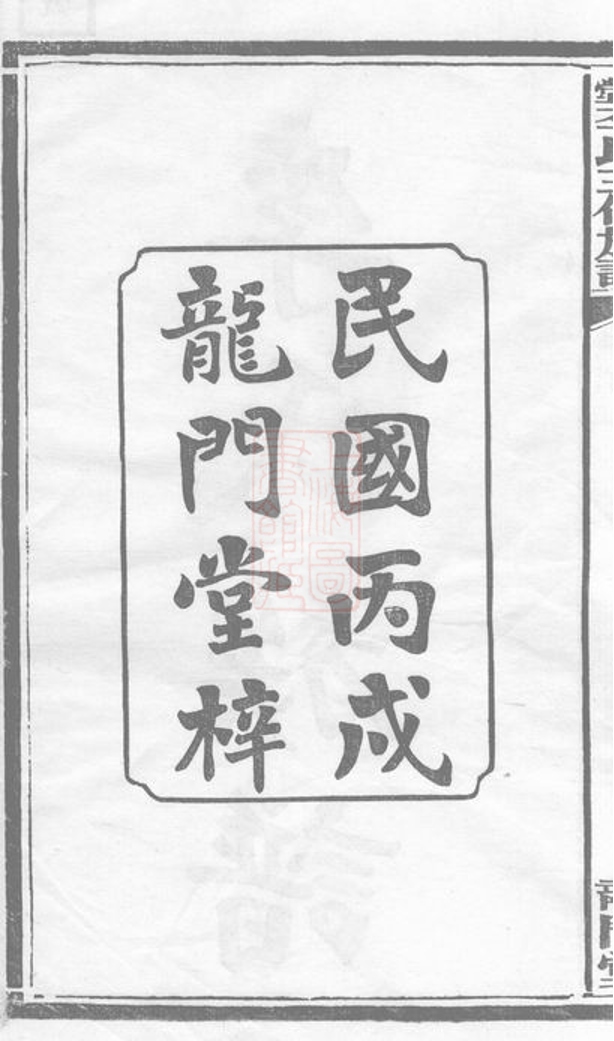 民國丙戌
龍門堂梓